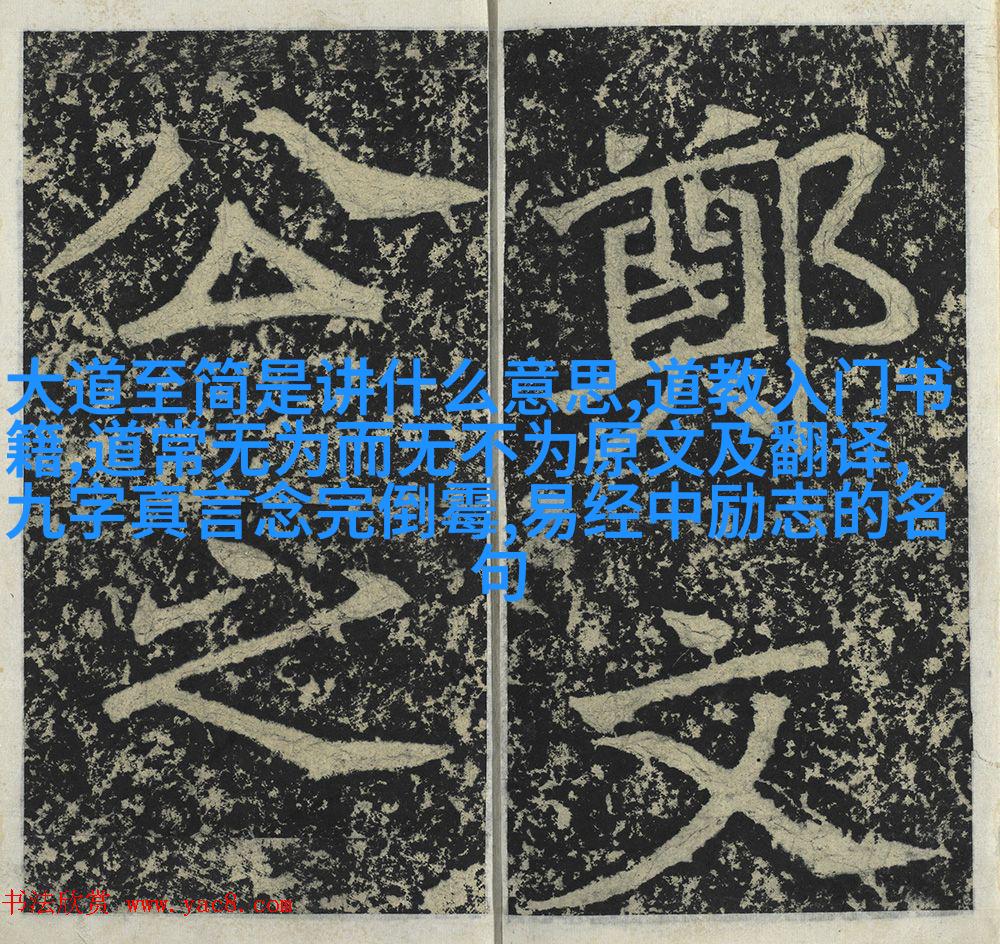 鄭文
公之
大道至简是讲什么意思,道教入门书
籍,道常无为而无不为原文及翻译,
九字真言念完倒霉,易经中励志的名
句
书法欣赏 www.yac8.com